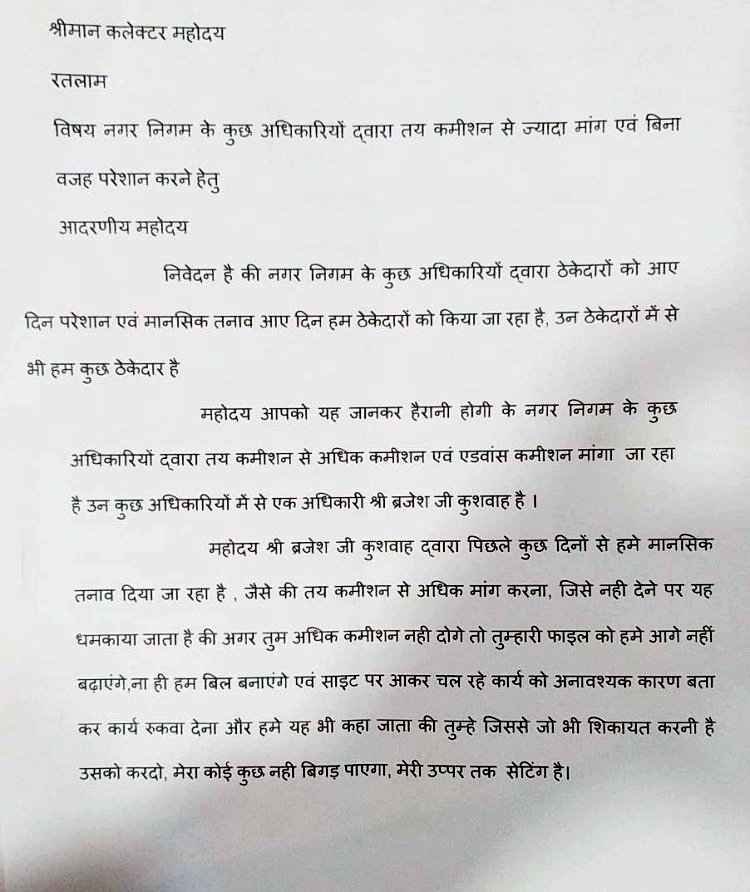 श्रीमान कलेक्टर महोदय
रतलाम
विषय नगर निगम के कुछ अधिकारियों द्वारा तय कमीशन से ज्यादा मांग एवं बिना
वजह परेशान करने हेतु
आदरणीय महोदय
निवेदन है की नगर निगम के कुछ अधिकारियों द्वारा ठेकेदारों को आए
दिन परेशान एवं मानसिक तनाव आए दिन हम ठेकेदारों को किया जा रहा है, उन ठेकेदारों में से
भी हम कुछ ठेकेदार है
महोदय आपको यह जानकर हैरानी होगी के नगर निगम के कुछ
अधिकारियों द्वारा तय कमीशन से अधिक कमीशन एवं एडवांस कमीशन मांगा जा रहा
है उन कुछ अधिकारियों में से एक अधिकारी श्री ब्रजेश जी कुशवाह है ।
महोदय श्री ब्रजेश जी कुशवाह द्वारा पिछले कुछ दिनों से हमे मानसिक
तनाव दिया जा रहा है , जैसे की तय कमीशन से अधिक मांग करना, जिसे नही देने पर यह
धमकाया जाता है की अगर तुम अधिक कमीशन नही दोगे तो तुम्हारी फाइल को हमे आगे नहीं
बढ़ाएंगे,ना ही हम बिल बनाएंगे एवं साइट पर आकर चल रहे कार्य को अनावश्यक कारण बता
कर कार्य रुकवा देना और हमे यह भी कहा जाता की तुम्हे जिससे जो भी शिकायत करनी है
उसको करदो, मेरा कोई कुछ नही बिगड़ पाएगा, मेरी उप्पर तक सेटिंग है।